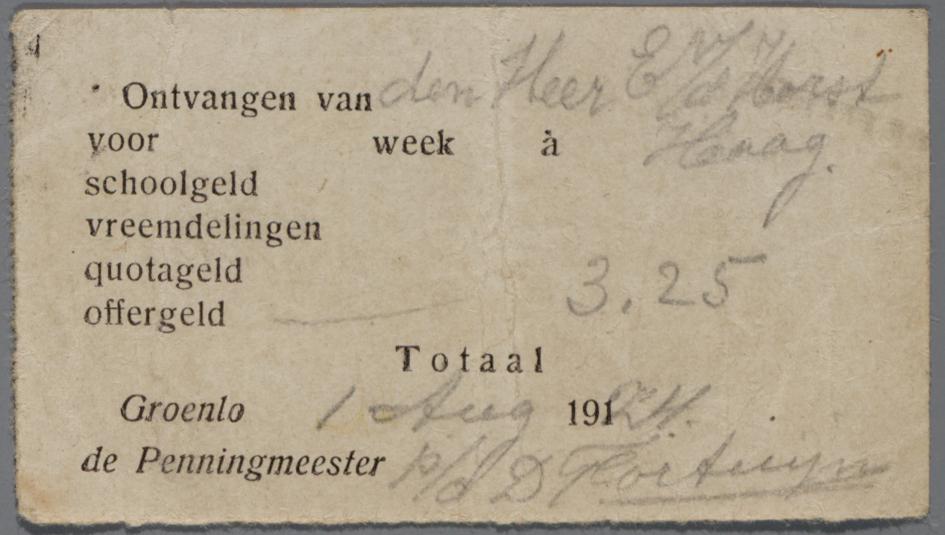 Ontvangen van den Heer E v/d Horst
voor week à Haag.
schoolgeld
vreemdelingen
quotageld 3.25
offergeld
Totaal
Groenlo 1 Aug 191 24.
de Penningmeester p/d D Fortuyn